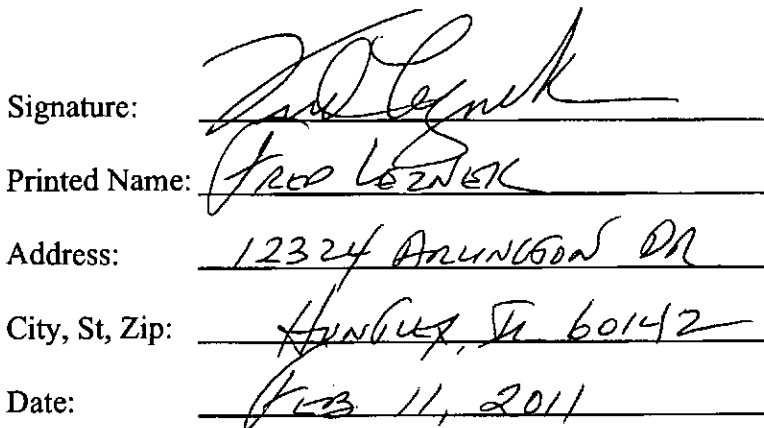 Signature: Fred Leznek
Printed Name: FRED LEZNEK
Address: 12324 ARLINGTON DR
City, St, Zip: HUNTLEY, IL 60142
Date: FEB 11, 2011